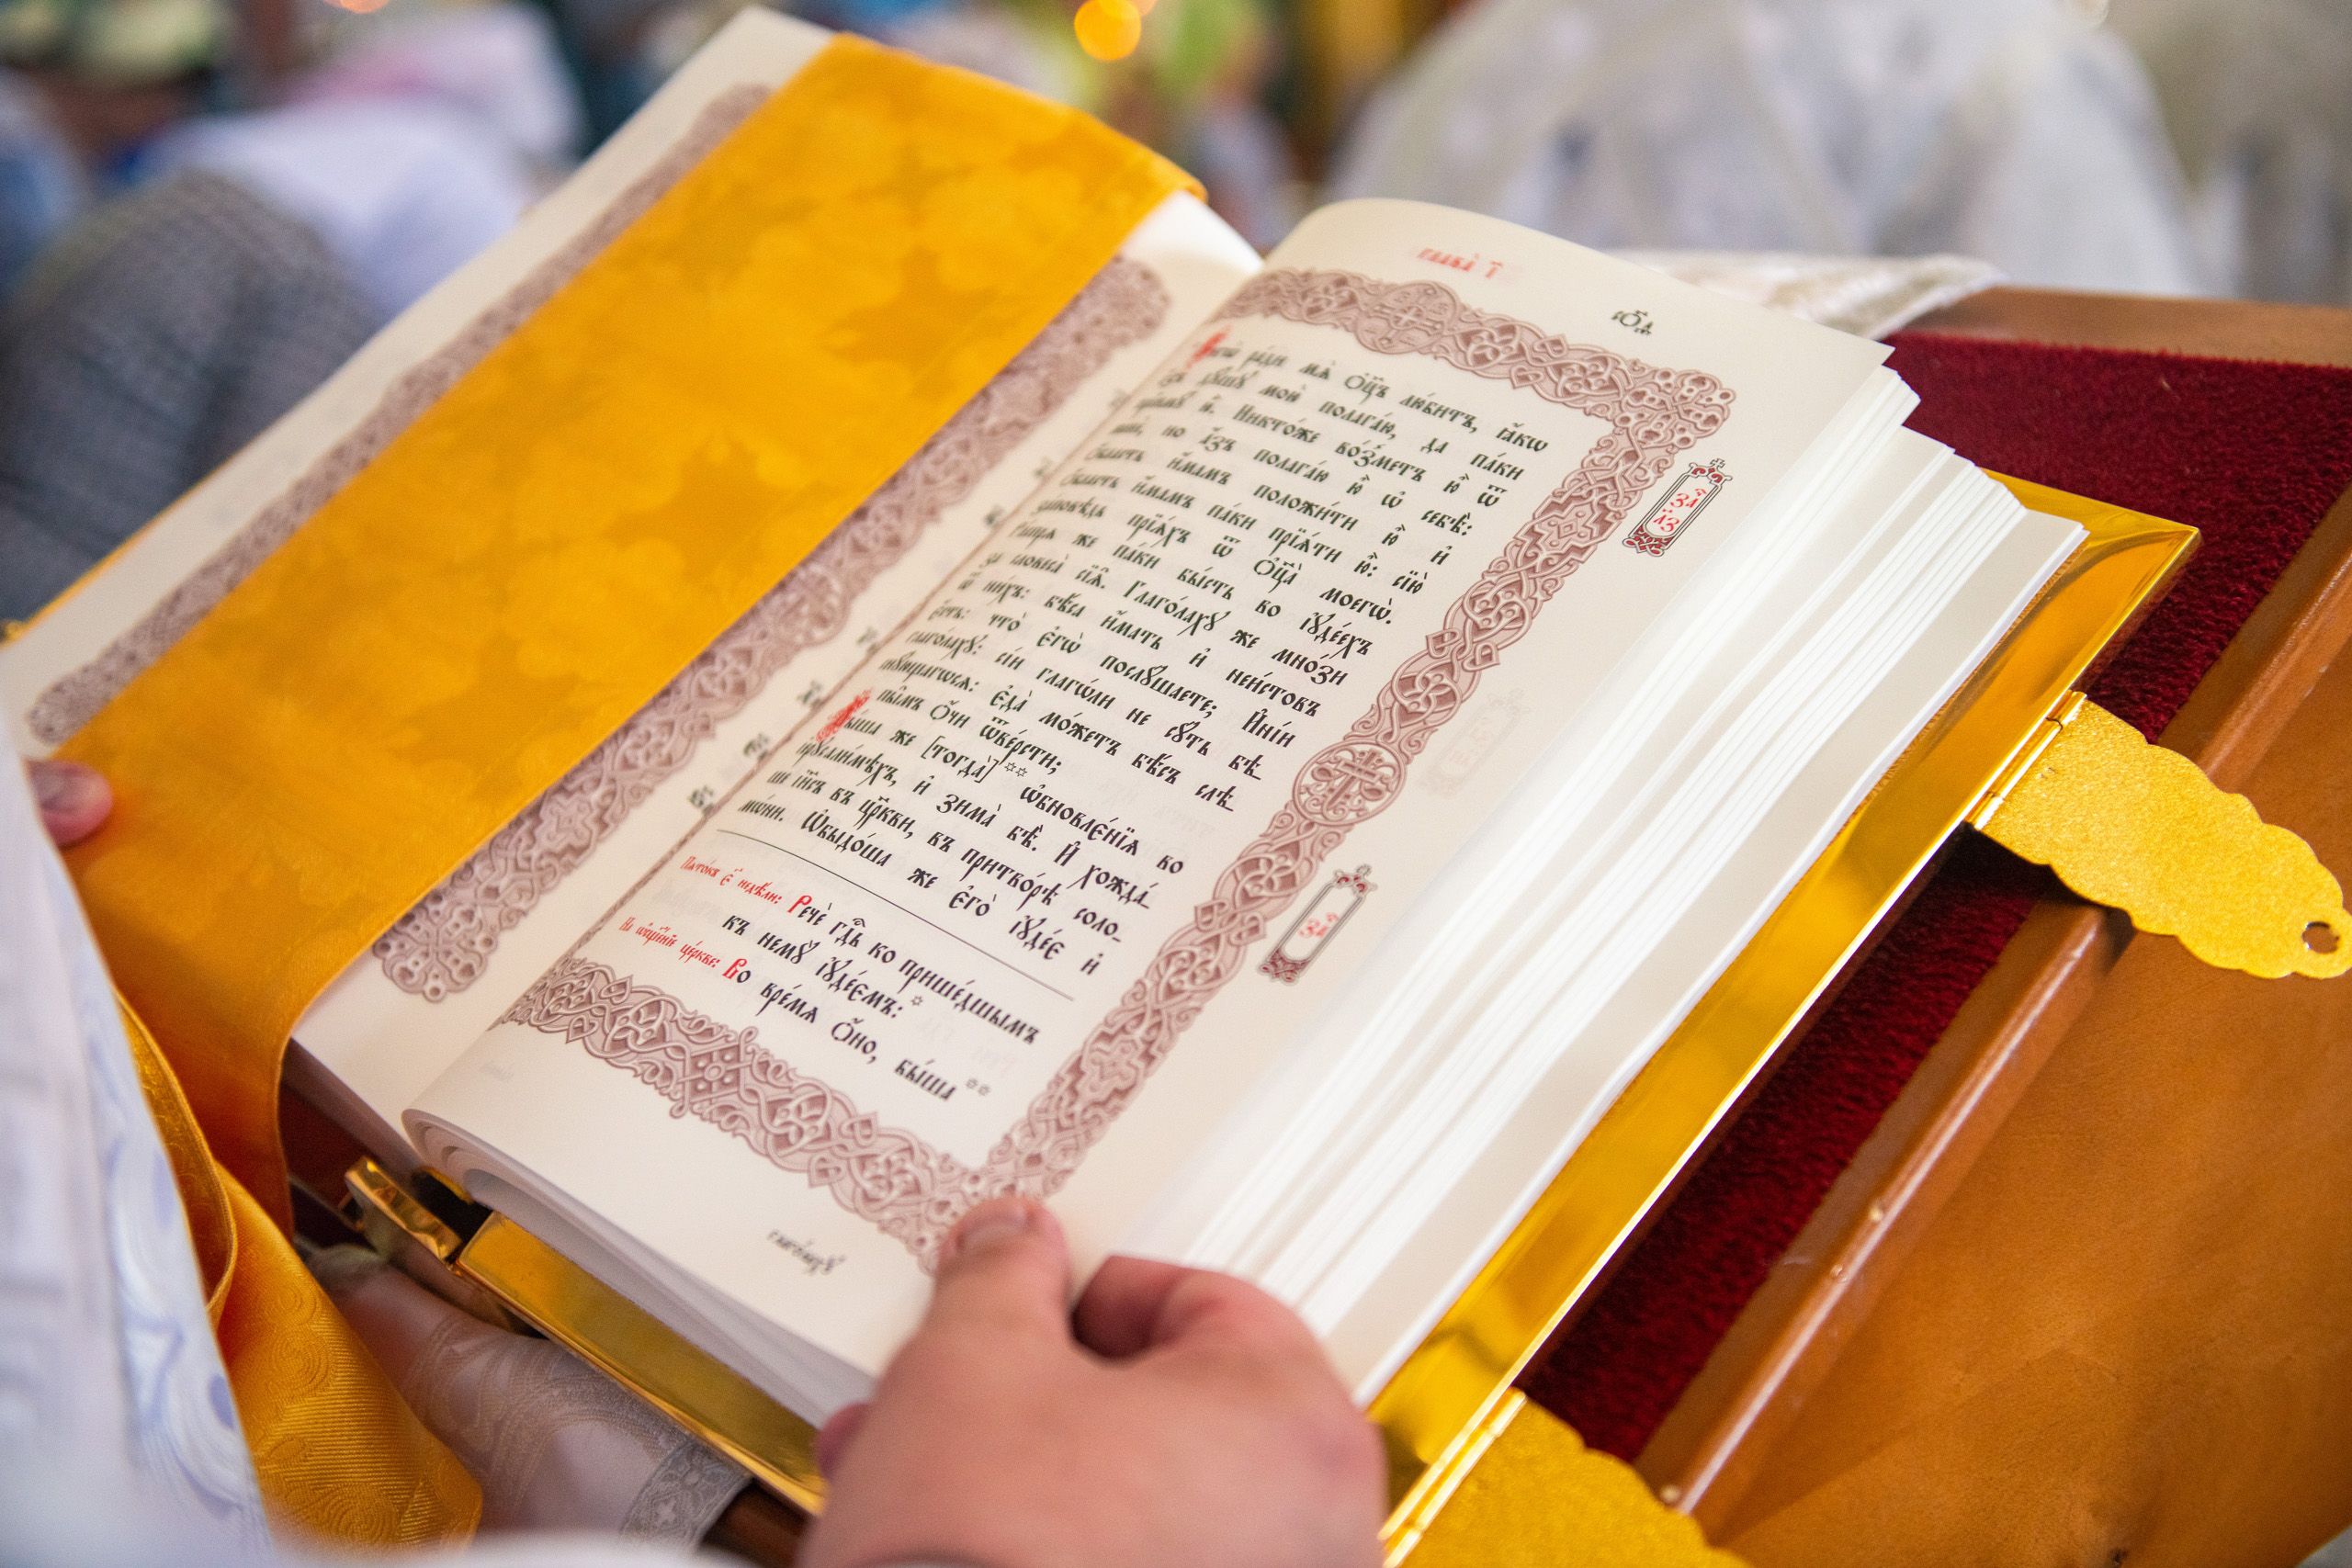 глава̀ і҃
сѻ҃д
Сегѡ̀ ра́ди мѧ̀ Ѻц҃ъ лю́битъ, ꙗ҆́кѡ
а҆́зъ дꙋ́шꙋ мою̀ полага́ю, да па́ки
прїимꙋ̀ ю҆̀. Никто́же во́зметъ ю҆̀ ѿ
менє̀, но а҆́зъ полага́ю ю҆̀ ѡ҆ себѣ̀:
ѻ҆́бласть и҆́мамъ положи́ти ю҆̀ и҆
ѻ҆́бласть и҆́мамъ па́ки прїѧ́ти ю҆̀: сїю̀
за́повѣдь прїѧ́хъ ѿ Ѻц҃а̀ моегѡ̀.
Ра́спрѧ же па́ки бы́сть во і҆ꙋде́ехъ
за словеса̀ сїѧ̑. Глаго́лахꙋ же мно́зи
ѿ ни́хъ: бѣ́са и҆́мать и҆ неи́стовъ
є҆́сть: что̀ Є҆гѡ̀ послꙋ́шаете; И҆ні́и
глаго́лахꙋ: сі́и глаго́ли не сꙋ́ть бѣ-
снꙋ́ющагѡсѧ: є҆да̀ мо́жетъ бѣ́съ слѣ-
пы̑мъ ѻ҆́чи ѿве́рсти;
Бы́ша же [тогда̀]** ѡ҆бновлє́нїѧ во
і҆ерꙋсали́мѣхъ, и҆ зима̀ бѣ̀. И҆ хожда́-
ше І҆и҃съ въ цр҃кви, въ притво́рѣ соло-
мѡ́ни. Ѡ҆быдо́ша же Є҆го̀ і҆ꙋде́є и҆
Пѧто́къ є҃ недѣ́ли: Речѐ гдⷭ҇ь ко прише́дшымъ
къ немꙋ̀ і҆ꙋде́ємъ:*
На ѡ҆сщ҃е́нїе це́ркве: Во вре́мѧ ѻ҆́но, бы́ша**
глаго́лахꙋ
за҃
л҃з
за҃